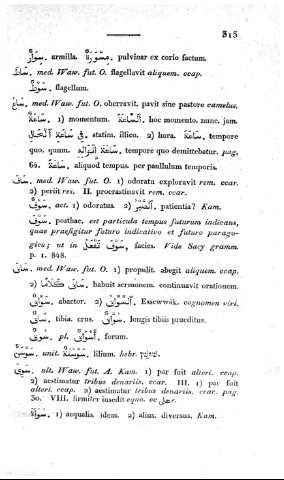 315
سِوَارٌ. armilla. مِسْوَرَةٌ. pulvinar ex corio factum.
سَاطَ. med. Waw. fut. O. flagellavit aliquem. ccap.
سَوْطٌ. flagellum.
سَاعَ. med. Waw. fut. O. oberravit. pavit sine pastore camelus.
سَاعَةٌ. 1) momentum. السَّاعَةَ. hoc momento. nunc. jam.
فِى سَاعَةِ الْحَالِ. statim. illico. 2) hora. سَاعَةَ. tempore
quo. quum. سَاعَةَ إِنْزَالِهِ. tempore quo demittebatur. pag.
64. سَاعَةً. aliquod tempus. per paullulum temporis.
سَافَ. med. Waw. fut. O. 1) odoratu exploravit rem. ccar.
2) periit res. II. procrastinavit rem. ccar.
سَوْفٌ. act. 1) odoratus. 2) الصَّبْرُ. patientia? Kam.
سَوْفَ. posthac. est particula tempus futurum indicans,
quae praefigitur futuro indicativo et futuro parago-
gico; ut in سَوْفَ تَفْعَلُ, facies. Vide Sacy gramm.
p. 1. 848.
سَاقَ. med. Waw. fut. O. 1) propulit. abegit aliquem. ccap.
2) سَاقَ كَلَامًا. habuit sermonem. continuavit orationem.
سَوَّاقٌ. abactor. 2) السَّوَّاقُ. Essewwák. cognomen viri.
سَاقٌ. tibia. crus. سُوَّاقٌ. longis tibiis praeditus.
سُوقٌ. pl. أَسْوَاقٌ. forum.
سَوْسَنٌ. unit. سَوْسَنَةٌ. lilium. hebr. שׁוּשַׁן.
سَوِىَ. ult. Waw. fut. A. Kam. 1) par fuit alteri. ccap.
2) aestimatur tribus denariis. ccar. III. 1) par fuit
alteri. ccap. 2) aestimatur tribus denariis. ccar. pag.
30. VIII. firmiter insedit equo. cc على r.
سَوَآءٌ. 1) aequalis. idem. 2) alius. diversus. Kam.